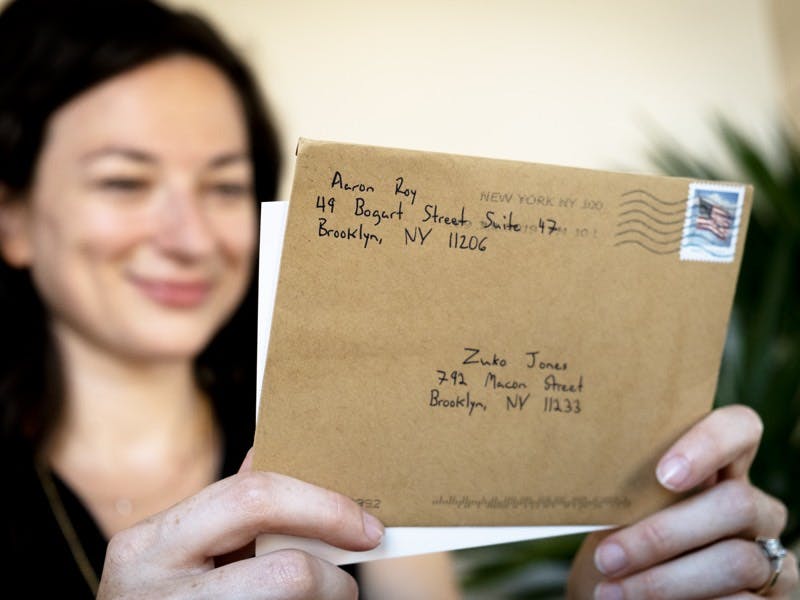 Aaron Roy
49 Bogart Street Suite 47
Brooklyn, NY 11206
NEW YORK NY 100
Zuko Jones
792 Macon Street
Brooklyn, NY 11233